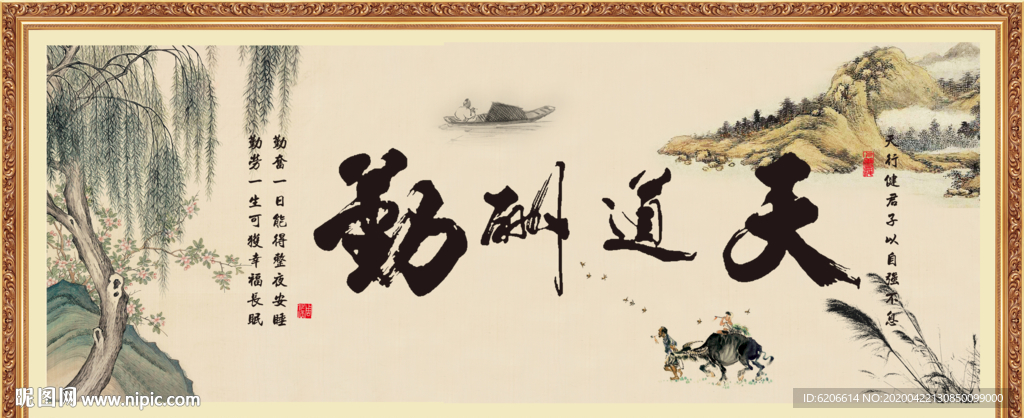 天道酬勤
天行健君子以自强不息
勤奮一日能得整夜安睡
勤勞一生可獲幸福長眠
昵图网 www.nipic.com
ID:6206614 NO:20200422130850099000